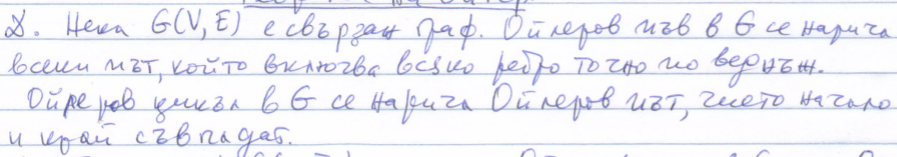 Д. Нека G(V, E) е свързан граф. Ойлеров път в G се нарича
всеки път, който включва всяко ребро точно по веднъж.
Ойлеров цикъл в G се нарича Ойлеров път, чието начало
и край съвпадат.